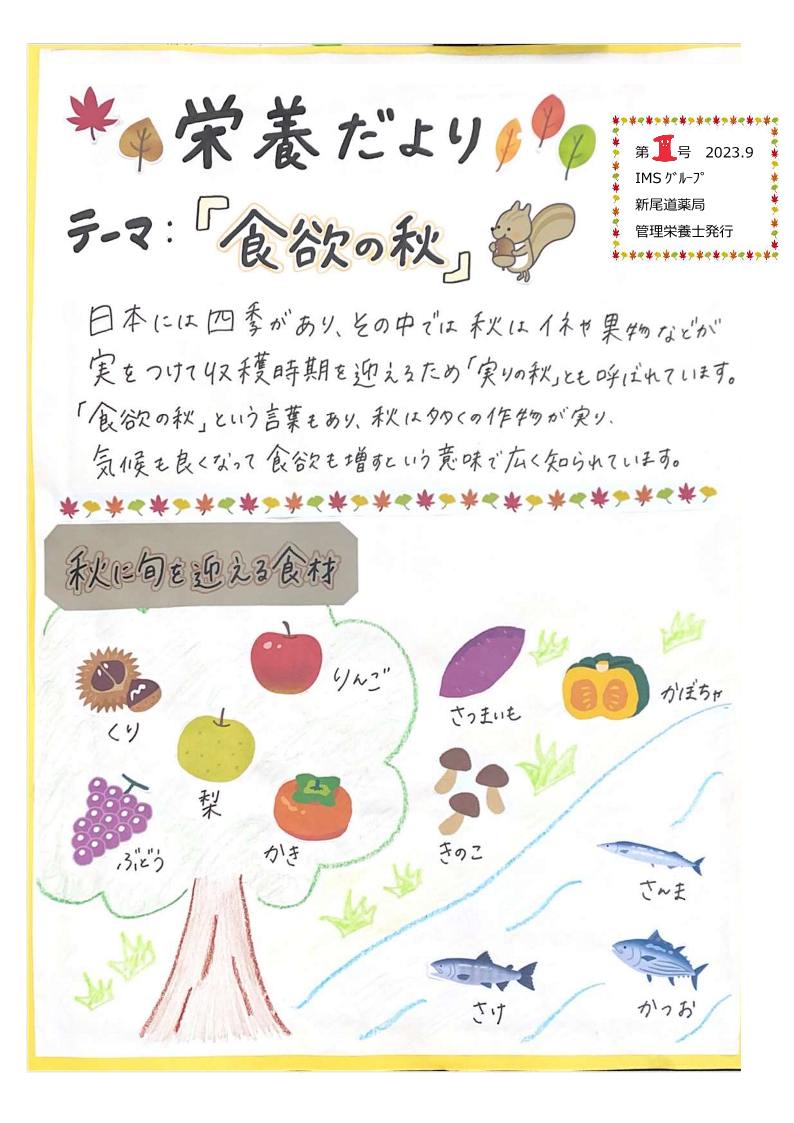 栄養だより
第1号 2023.9
IMSグループ
新尾道薬局
管理栄養士発行
テーマ:『食欲の秋』
日本には四季があり、その中では秋はイネや果物などが
実をつけて収穫時期を迎えるため「実りの秋」とも呼ばれています。
「食欲の秋」という言葉もあり、秋は多くの作物が実り、
気候も良くなって食欲も増すという意味で広く知られています。
秋に旬を迎える食材
くり
りんご
梨
ぶどう
かき
さつまいも
かぼちゃ
きのこ
さんま
さけ
かつお